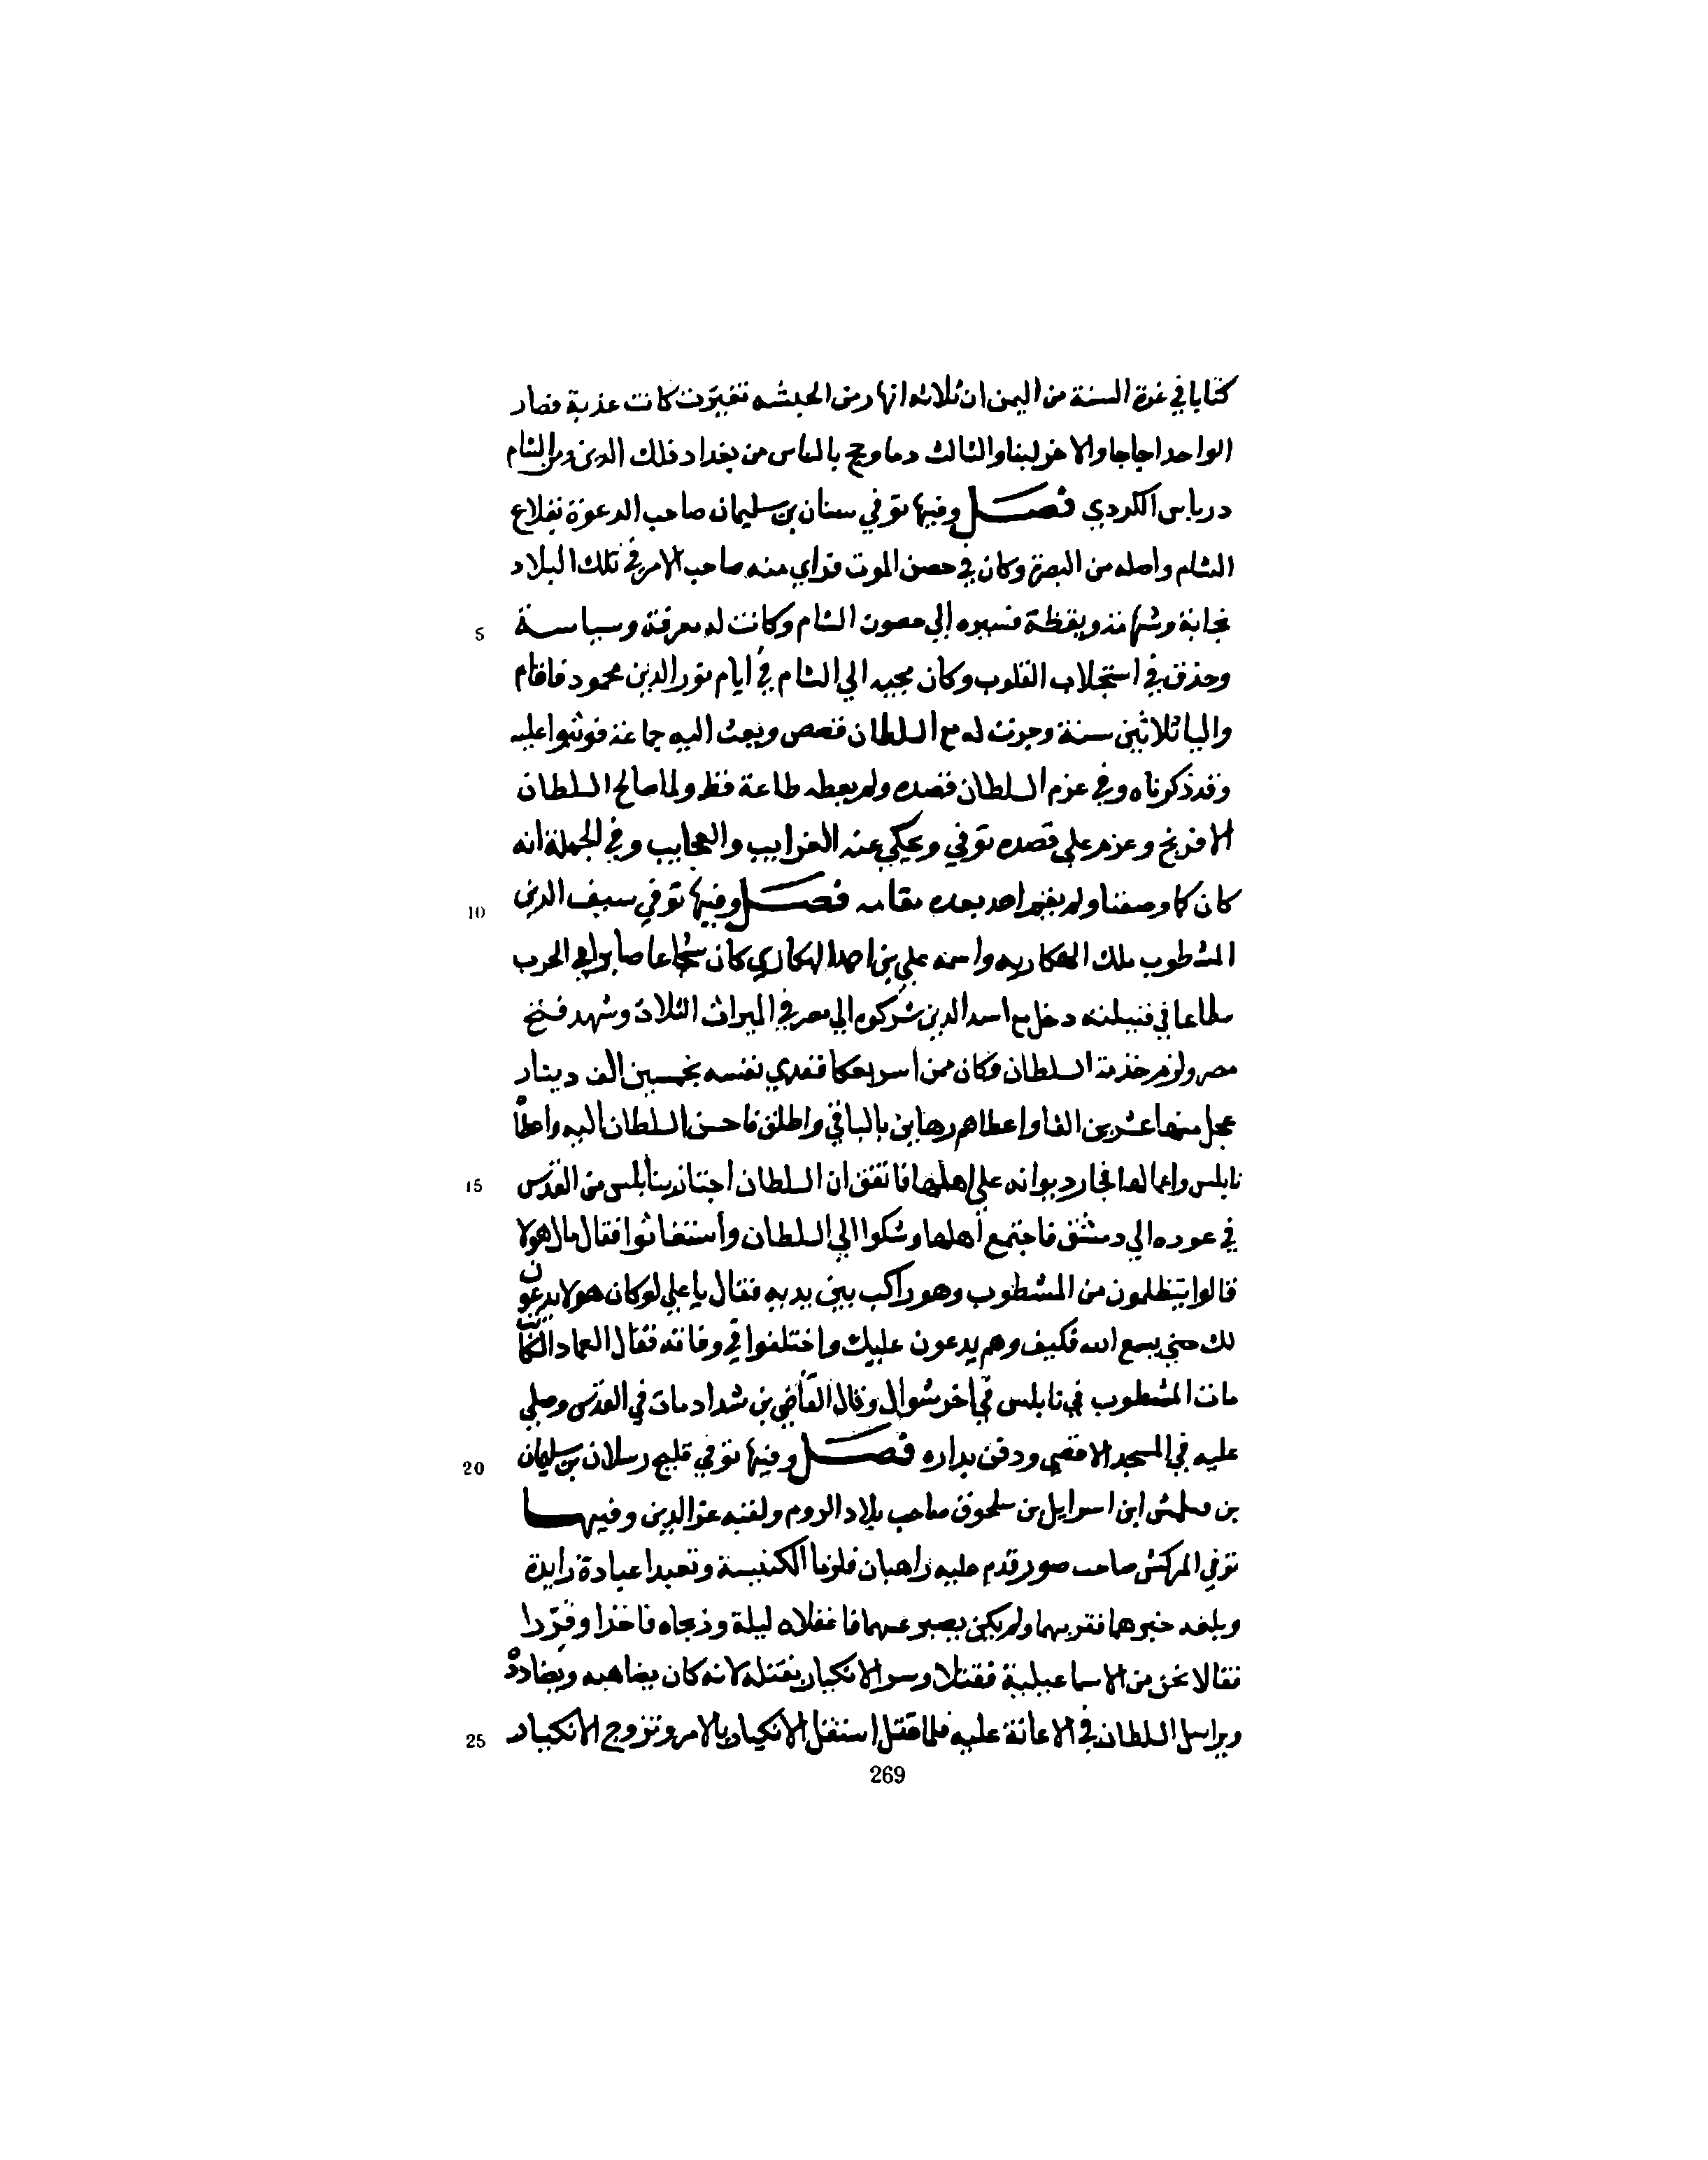 كتابا في غرة السنة من اليمن ان ثلاثه انهار من الحبشه تغيرت كانت عذبة فصار
الواحد اجاجا والاخر لبنا والثالث دما وحج بالناس من بغداد فلك الدين ومن الشام
درباس الكردي فصل وفيها توفي سنان بن سليمان صاحب الدعوة بقلاع
الشام واصله من البصرة وكان في حصن الموت فراي منه صاحب الامر في تلك البلاد
نجابة وشهامة ويقظة فسيره الي حصون الشام وكانت له معرفة وسياسة
5
وحذق في استجلاب القلوب وكان مجيه الي الشام في ايام نور الدين محمود فاقام
واليا ثلاثين سنة وجرت له مع السلطان قصص وبعث اليه جماعة فوثبوا عليه
وقد ذكرناه وفي عزم السلطان قصده ولم يعطه طاعة قط ولما صالح السلطان
الافرنج وعزم علي قصده توفي ويحكي عنه الغرايب والعجايب وفي الجملة انه
كان كما وصفنا ولم يقم احد بعده مقامه فصل وفيها توفي سيف الدين
10
المشطوب ملك الهكاريه واسمه علي بن احمد الهكاري كان شجاعا صابرا في الحرب
مطاعا في قبيلته دخل مع اسد الدين شركوه الي مصر في المرات الثلاث وشهد فتح
مصر ولزم خدمة السلطان وكان ممن اسر بعكا ففدي نفسه بخمسين الف دينار
عجل منها عشرين الفا واعطاهم رهاين بالباقي واطلق فاحسن السلطان اليه واعطاه
نابلس واعمالها فجار ديوانه علي اهلها فاتفق ان السلطان اجتاز بنابلس من القدس
15
في عوده الي دمشق فاجتمع اهلها وشكوا الي السلطان واستغاثوا فقال مال هولا
قالوا يتظلمون من المشطوب وهو راكب بين يديه فقال يا علي لو كان هولا يدعون
لك حتي يسمع الله فكيف وهم يدعون عليك واختلفوا في وفاته فقال العماد الكاتب
مات المشطوب في نابلس في اخر شوال وقال القاضي بن شداد مات في القدس وصلي
عليه في المسجد الاقصي ودفن بداره فصل وفيها توفي قليج رسلان بن سليمان
20
بن قتلمش ابن اسرايل بن سلجوق صاحب بلاد الروم ولقبه عز الدين وفيها
توفي المركيس صاحب صور قدم عليه راهبان فلزما الكنيسة وتعبدا عبادة زايدة
وبلغه خبرهما فقربهما ولم يكن يصبر عنهما فاغفلاه ليلة وذبحاه فاخذا وقررا
فقالا نحن من الاسماعيلية فقتلا وسر الانكيار بقتله لانه كان يضاهيه ويضادده
ويراسل السلطان في الاعانة عليه فلما قتل استقل الانكيار بالامر وتزوج الانكيار
25
269